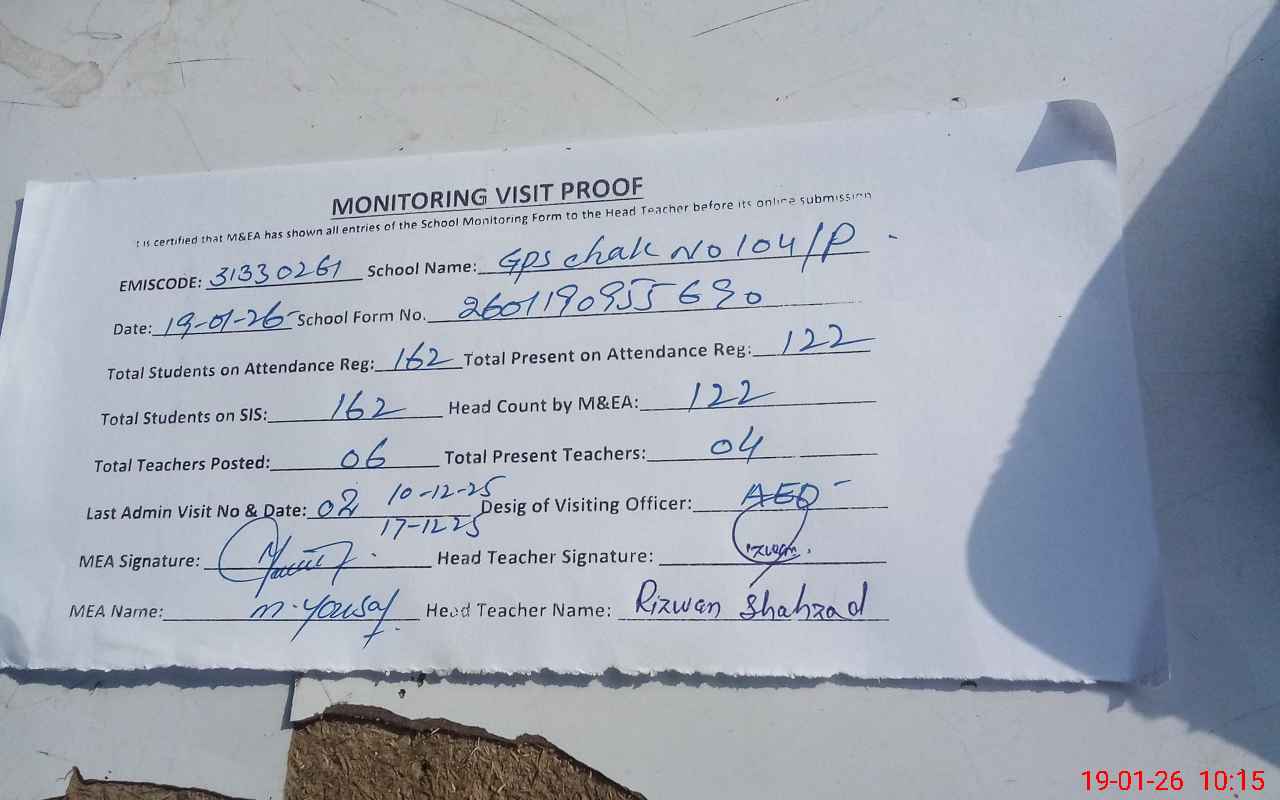 MONITORING VISIT PROOF
t is certified that M&EA has shown all entries of the School Monitoring Form to the Head Teacher before its online submission
EMISCODE: 31330261 School Name: GPS chak no 104/P
Date: 19-01-26 School Form No. 2601190955690
Total Students on Attendance Reg: 162 Total Present on Attendance Reg: 122
Total Students on SIS: 162 Head Count by M&EA: 122
Total Teachers Posted: 06 Total Present Teachers: 04
Last Admin Visit No & Date: 02 10-12-25 Desig of Visiting Officer: AEO
17-12 25
MEA Signature: Head Teacher Signature:
MEA Name: M. Yousaf Head Teacher Name: Rizwan Shahzad
19-01-26 10:15